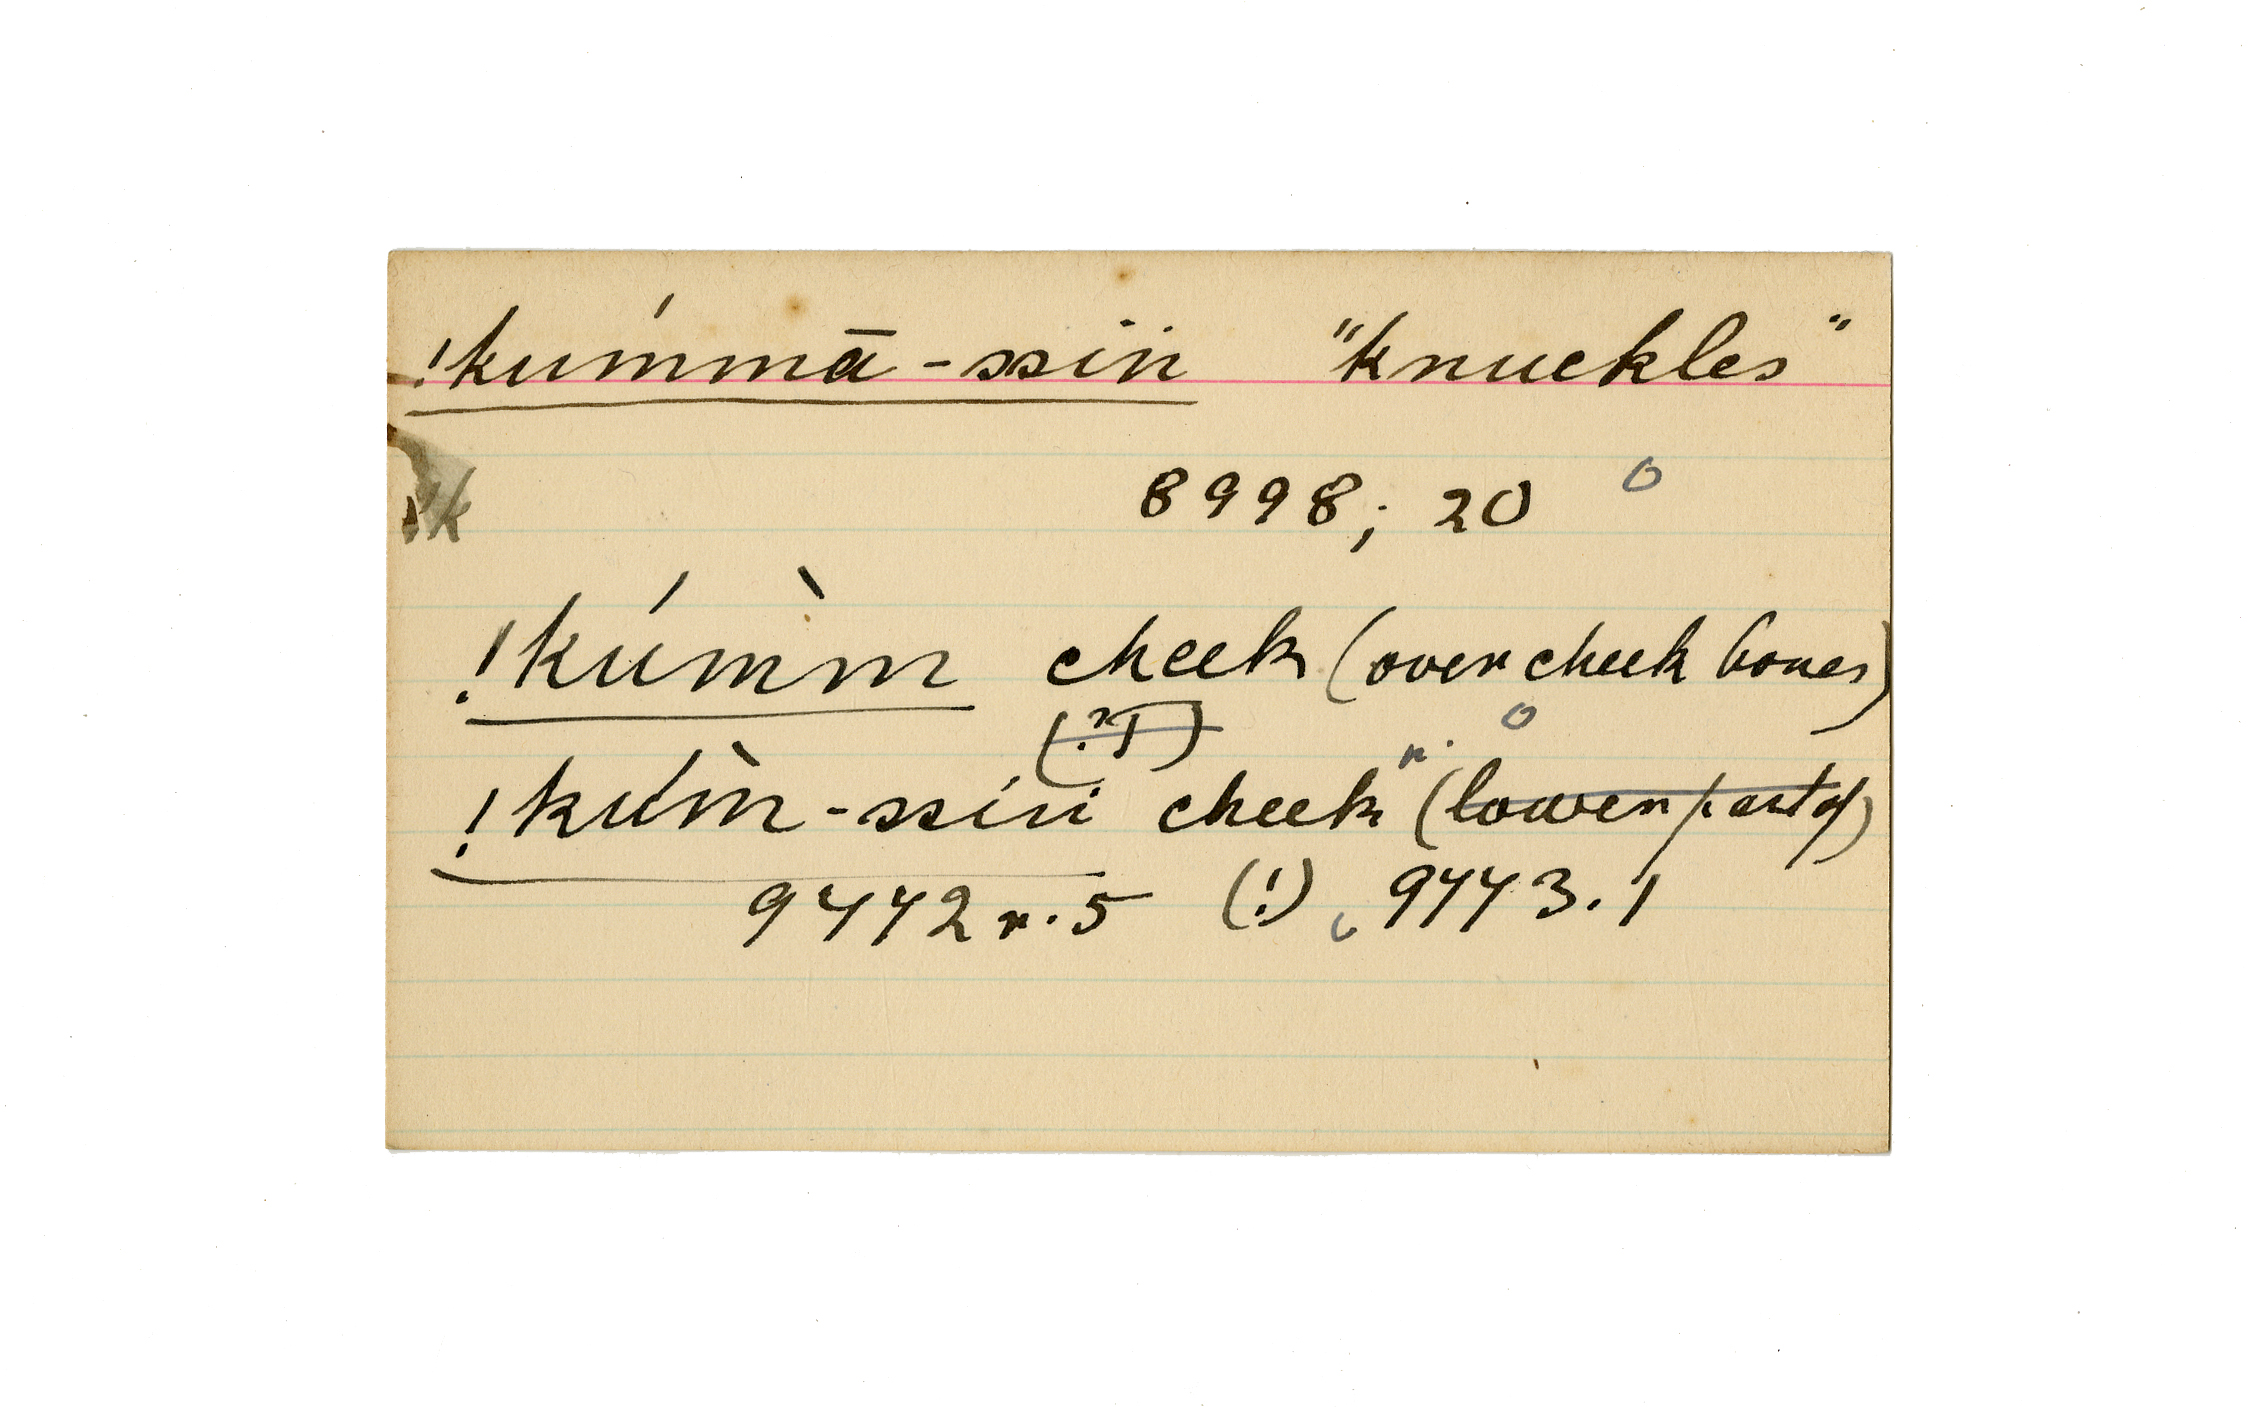 !kúmmā-ssin "knuckles"
!k 8998; 20 o
!kúm̀m cheek (over cheek bones)
(?T) o
!kúm̀-ssin cheek (lower part of)
9442 r. 5 (!) 9443. 1